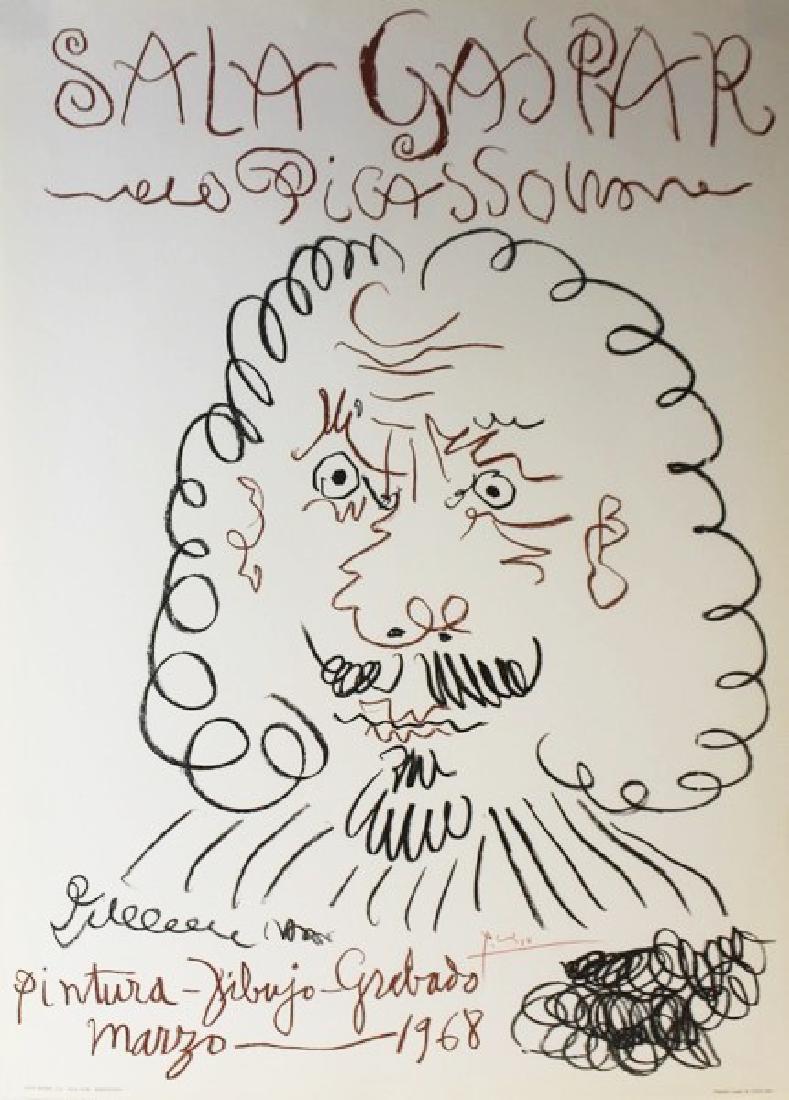 SALA GASPAR
Picasso
Pintura - Dibujo - Grabado
Marzo — 1968